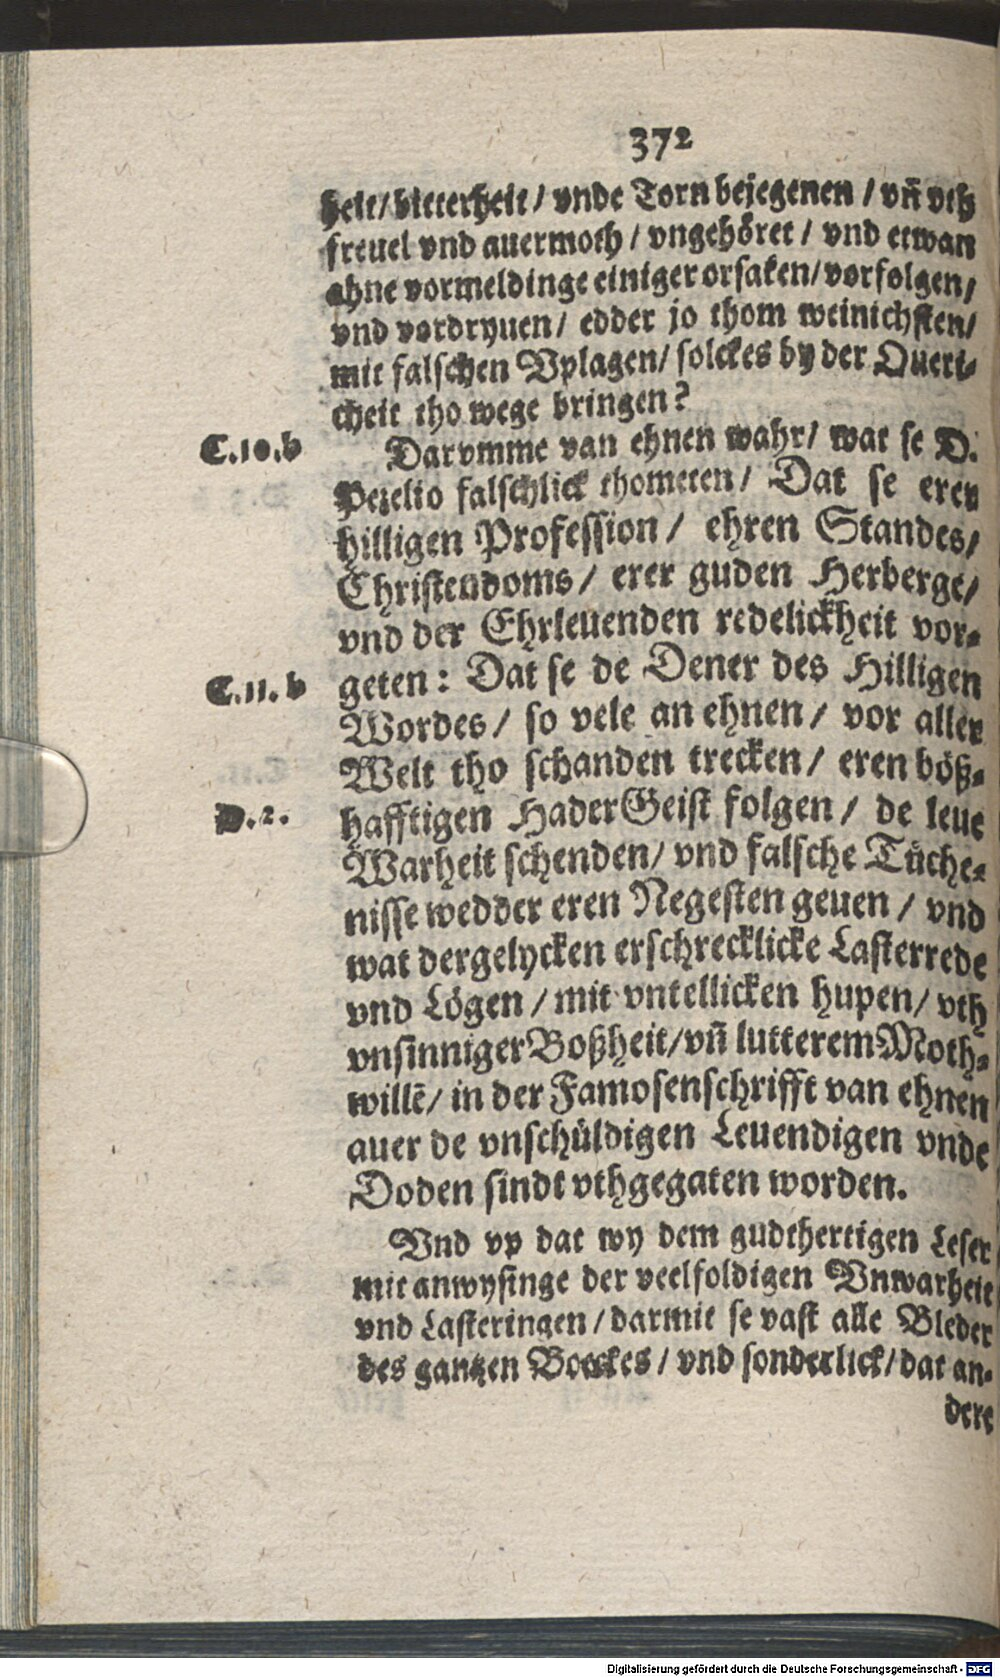 372
heit/bitterheit/ vnde Torn bejegenen / vñ vth
freuel vnd auermoth / vngehöret / vnd etwan
ahne vormeldinge einiger orsaken/ vorfolgen/
vnd vordryuen/ edder jo thom weinichsten/
mit falschen Vplagen/ solckes by der Oueri-
cheit tho wege bringen?
C.10.b
Darvmme van ehnen wahr/ wat se D.
Pezelio falschlick thometen/ Dat se eren
hilligen Profession / ehren Standes/
Christendoms/ erer guden Herberge/
vnd der Ehrleuenden redelickheit vor-
C.11.b
geten: Dat se de Dener des Hilligen
Wordes/ so vele an ehnen/ vor aller
Welt tho schanden trecken/ eren böß-
D.2.
hafftigen HaderGeist folgen / de leue
Warheit schenden/ vnd falsche Tüche-
nisse wedder eren Negesten geuen / vnd
wat dergelycken erschrecklicke Lasterrede
vnd Lögen / mit vntellicken hupen/ vth
vnsinniger Boßheit/vñ lutterem Moth-
willē/ in der Famosenschrifft van ehnen
auer de vnschüldigen Leuendigen vnde
Doden sindt vthgegaten worden.
Vnd vp dat wy dem gudthertigen Leser
mit anwysinge der veelfoldigen Vnwarheit
vnd Lasteringen/darmit se vast alle Bleder
des gantzen Boeckes / vnd sonderlick/dat an-
dere
Digitalisierung gefördert durch die Deutsche Forschungsgemeinschaft - DFG